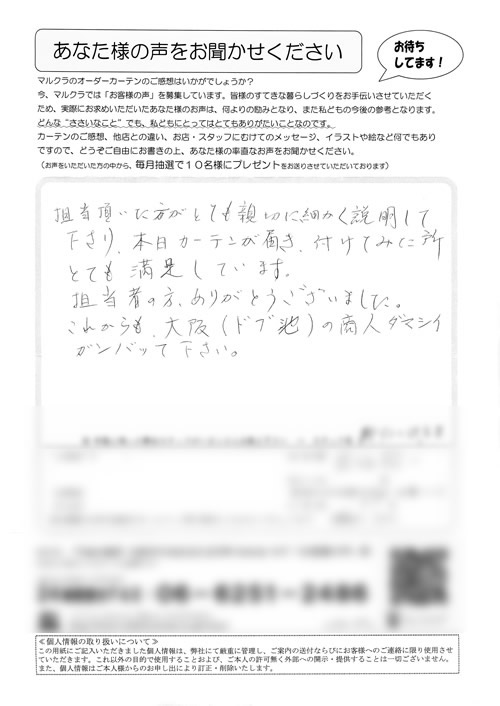 あなた様の声をお聞かせください
お待ち
してます!
マルクラのオーダーカーテンのご感想はいかがでしょうか?
今、マルクラでは「お客様の声」を募集しています。皆様のすてきな暮らしづくりをお手伝いさせていただく
ため、実際にお求めいただいたあなた様のお声は、何よりの励みとなり、また私どもの今後の参考となります。
どんな“ささいなこと”でも、私どもにとってはとてもありがたいことなのです。
カーテンのご感想、他店との違い、お店・スタッフにむけてのメッセージ、イラストや絵など何でもあり
ですので、どうぞご自由にお書きの上、あなた様の率直なお声をお聞かせください。
(お声をいただいた方の中から、毎月抽選で10名様にプレゼントをお送りさせていただいております)
担当頂いた方がとても親切に細かく説明して
下さり、本日カーテンが届き、付けてみた所
とても満足しています。
担当者の方、ありがとうございました。
これからも、大阪(ドブ池)の商人ダマシイ
ガンバッて下さい。
06-6251-2486
≪個人情報の取り扱いについて≫
この用紙にご記入いただきました個人情報は、弊社にて厳重に管理し、ご案内の送付ならびにお客様へのご連絡に限り使用させ
ていただきます。これ以外の目的で使用することおよび、ご本人の許可無く外部への開示・提供することは一切ございません。
また、個人情報はご本人様からのお申し出により訂正・削除いたします。